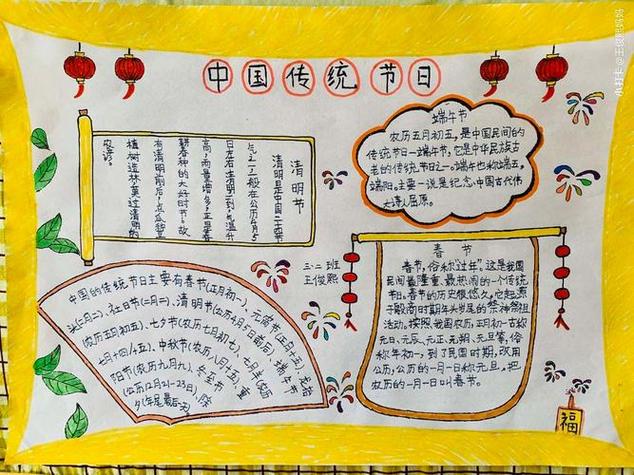 中国传统节日
清明节
清明是中国二十四节
气之一,一般在公历4月5
日左右,清明一到,气温升
高,雨量增多,正是春
耕春种的大好时节。故
有"清明前后,点瓜种豆
植树造林,莫过清明的
农谚。
端午节
农历五月初五,是中国民间的
传统节日—端午节,它是中华民族古
老的传统节日之一。端午也称端五,
端阳。主要一说是纪念中国古代伟
大诗人屈原。
三·二班
王俊熙
中国的传统节日主要有春节(正月初一)、元宵节(正月十五)、龙抬
头(二月二)、社日节(二月二)、清明节(公历4月5日前后)、端午节
(农历五月初五)、七夕节(农历七月初七)、七月半(农历
七月十四/十五)、中秋节(农历八月十五)、重
阳节(农历九月九)、冬至节
(公历12月21-23日)、除
夕(年尾最后一天)
春 节
春节,俗称"过年",这是我国
民间最隆重、最热闹的一个传统
节日。春节的历史很悠久,它起源
于殷商时期年头岁尾的祭神祭祖
活动。按照我国农历,正月初一古称
元日、元辰、元正、元朔、元旦等,俗
称年初一,到了民国时期,改用
公历,公历的一月一日称元旦,把
农历的一月一日叫春节。
福
小打卡@王俊熙妈妈